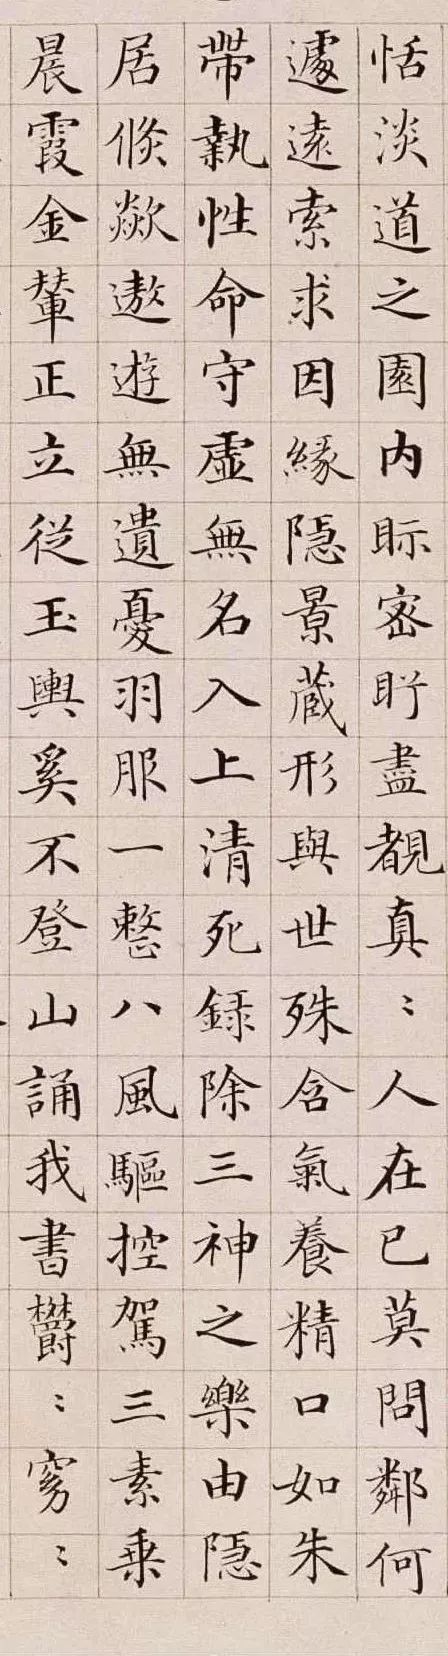 恬淡道之園内眎密盻盡覩真〻人在已莫問鄰何
遽遠索求因緣隱景蔵形與世殊含氣養精口如朱
帶執性命守虛無名入上清死録除三神之樂由隱
居倏欻遨遊無遺憂羽服一整八風驅控駕三素乗
晨霞金輦正立從玉輿奚不登山誦我書欝〻窈〻